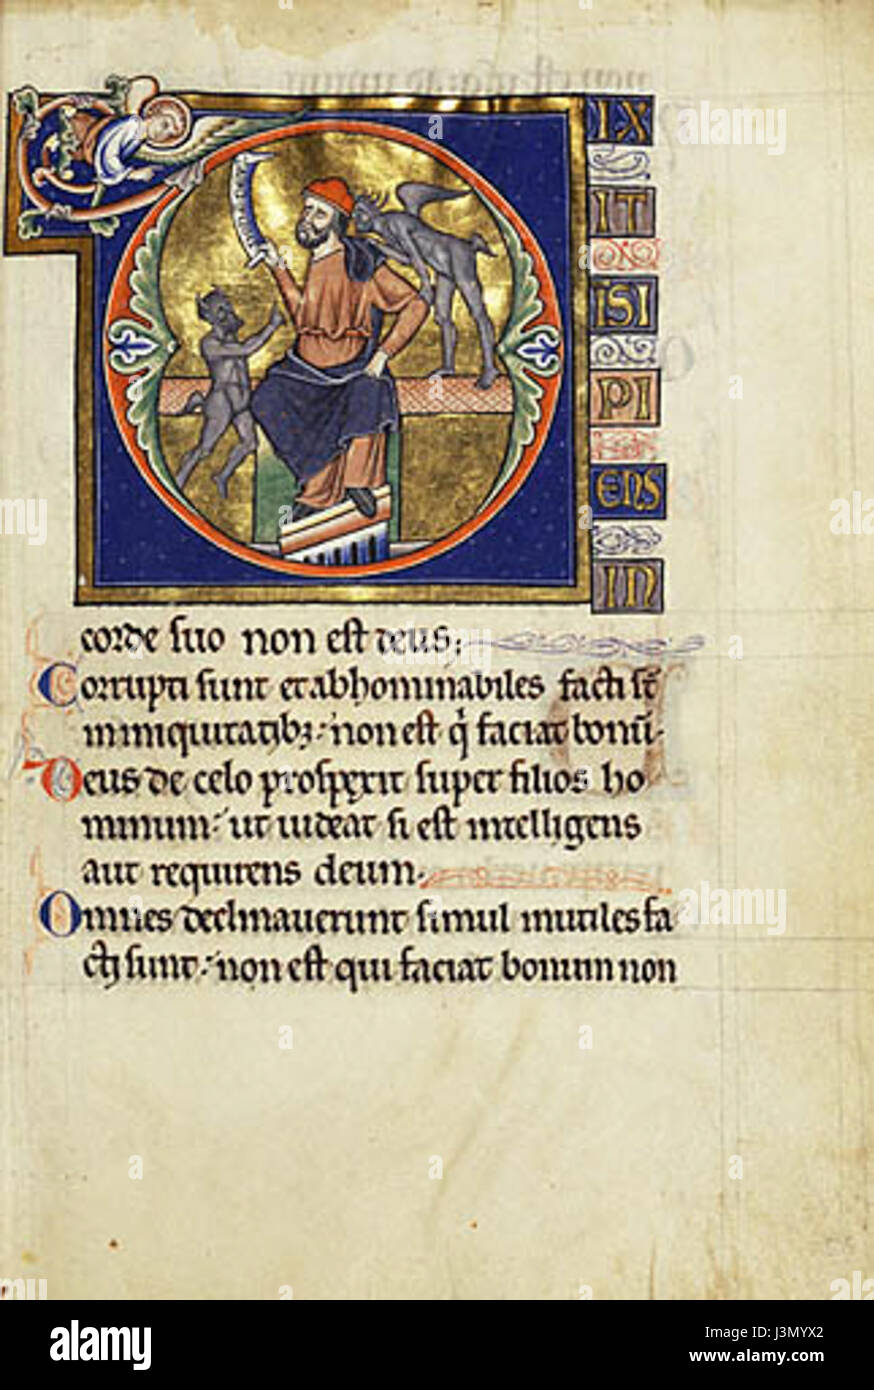 IX
IT
ISI
PI
ENS
IN
corde suo non est deus;
Corrupti sunt et abhominabiles facti st̄
in iniquitatibꝫ: non est q̇ faciat bonū.
Deus de celo prospexit super filios ho
minum: ut uideat si est intelligens
aut requirens deum.
Omnes declinauerunt simul inutiles fa
cti sunt: non est qui faciat bonum non
alamy
Image ID: J3MYX2
www.alamy.com